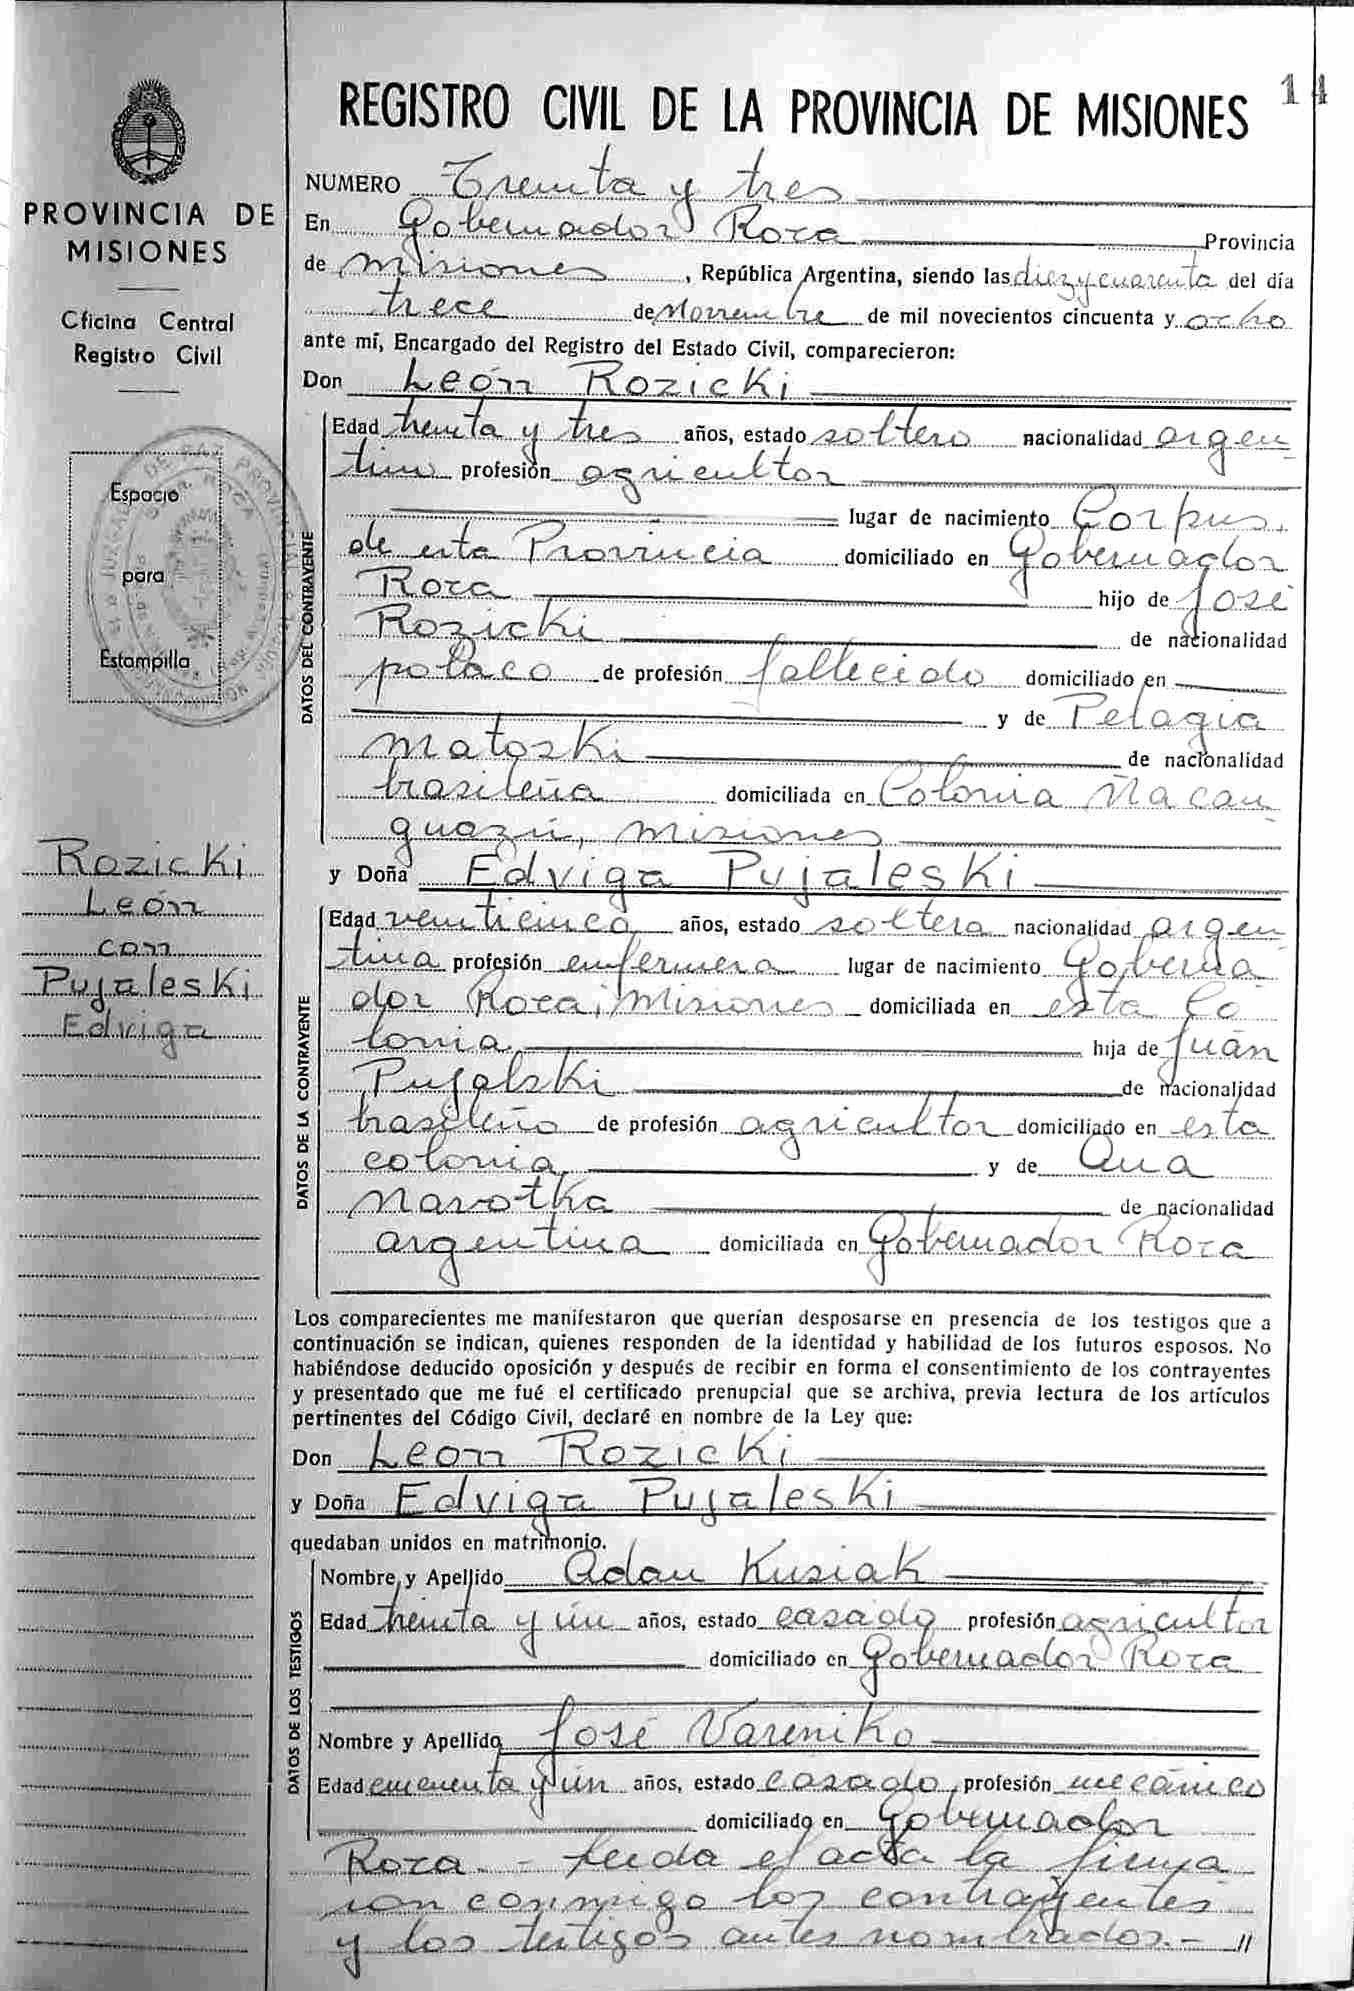 REGISTRO CIVIL DE LA PROVINCIA DE MISIONES
14
PROVINCIA DE
MISIONES
Oficina Central
Registro Civil
Espacio
para
Estampilla
Rozicki
León
con
Pujaleski
Edviga
NUMERO Treinta y tres
En Gobernador Roca Provincia
de Misiones, República Argentina, siendo las diez y cuarenta del día
trece de Noviembre de mil novecientos cincuenta y ocho
ante mí, Encargado del Registro del Estado Civil, comparecieron:
Don León Rozicki
DATOS DEL CONTRAYENTE
Edad treinta y tres años, estado soltero nacionalidad argen
tino profesión agricultor
lugar de nacimiento Corpus,
de esta Provincia domiciliado en Gobernador
Roca hijo de José
Rozicki de nacionalidad
polaco de profesión fallecido domiciliado en
y de Pelagia
Matoski de nacionalidad
brasileña domiciliada en Colonia Ñacan
guazú, Misiones
y Doña Edviga Pujaleski
DATOS DE LA CONTRAYENTE
Edad veinticinco años, estado soltera nacionalidad argen
tina profesión enfermera lugar de nacimiento Goberna
dor Roca, Misiones domiciliada en esta Co
lonia hija de Juán
Pujalski de nacionalidad
brasileño de profesión agricultor domiciliado en esta
colonia, y de Ana
Navotka de nacionalidad
argentina domiciliada en Gobernador Roca
Los comparecientes me manifestaron que querían desposarse en presencia de los testigos que a
continuación se indican, quienes responden de la identidad y habilidad de los futuros esposos. No
habiéndose deducido oposición y después de recibir en forma el consentimiento de los contrayentes
y presentado que me fué el certificado prenupcial que se archiva, previa lectura de los artículos
pertinentes del Código Civil, declaré en nombre de la Ley que:
Don Leon Rozicki
y Doña Edviga Pujaleski
quedaban unidos en matrimonio.
DATOS DE LOS TESTIGOS
Nombre y Apellido Adan Kusiak
Edad treinta y ún años, estado casado profesión agricultor
domiciliado en Gobernador Roca
Nombre y Apellido José Vareniko
Edad cincuenta y ún años, estado casado, profesión mecánico
domiciliado en Gobernador
Roca.- Leida el acta la firma
ron conmigo los contrayentes
y los testigos antes nombrados.- //